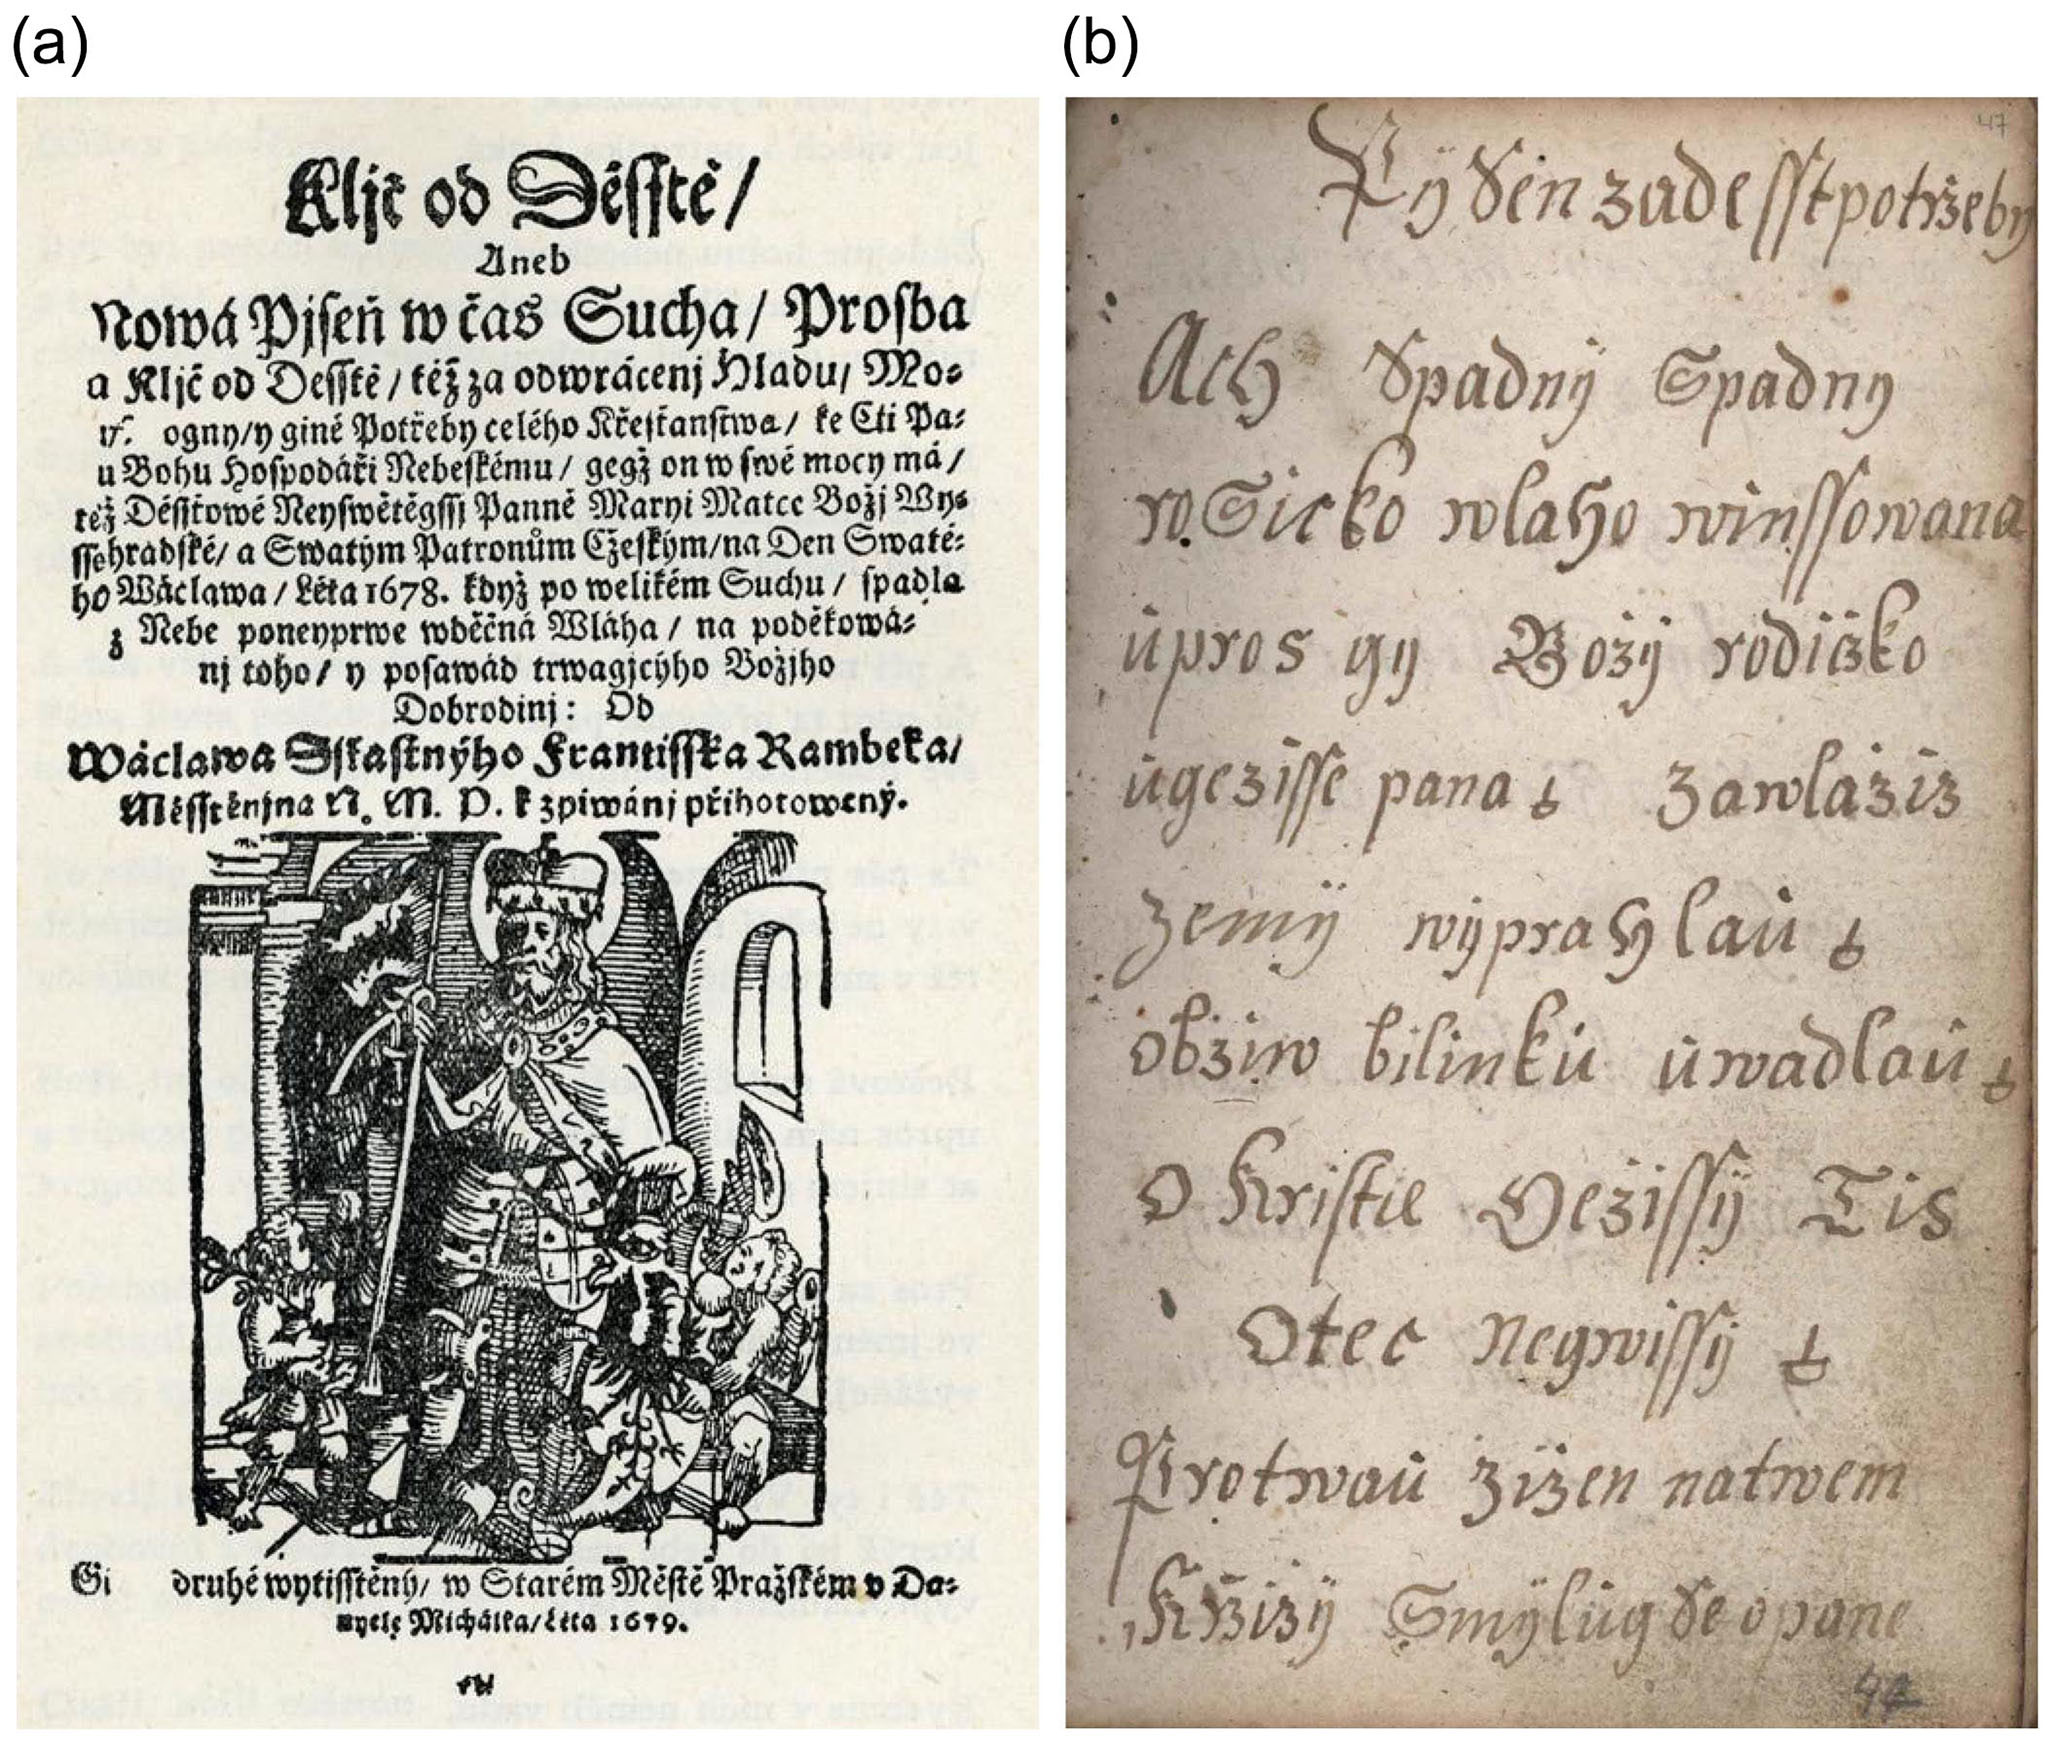 (a)
Kljč od Děsstě/
Aneb
Nowá Pjseň w čas Sucha/ Prosba
a Kljč od Desstě/ též za odwrácenj Hladu/ Mo-
ogny/ y giné Potřeby celého Křestanstwa/ ke Cti Pa-
u Bohu Hospodáři Nebeskému/ gegž on w swé mocy má/
též Désstowé Neyswětěgssj Panně Maryi Matce Božj Wy-
ssehradské/ a Swatým Patronům Cžeským/ na Den Swaté-
ho Wáclawa/ Léta 1678. když po welikém Suchu/ spadla
z Nebe poneyprwe wděčná Wláha/ na poděkowá-
nj toho/ y posawád trwagjcýho Božjho
Dobrodinj: Od
Wáclawa Sstastnýho Frantisska Rambeka/
Měsstěnjna N. M. P. k zpiwánj přihotowený.
Gi druhé wytisstěný/ w Starém Městě Pražském v Da-
nyele Michálka/ Léta 1679.
(b)
47
Pÿsen za desst potržeby
Ach Spadnÿ Spadny
roSicko wlaho winssowana
upros gy Božÿ rodičko
ugezisse pana Zawlaziz
Zemÿ wÿprahlau
obziw bilinku uwadlau
O Kristie Gezissÿ Tis
Otec Negwissÿ
Protwau zizen natwem
Kržizÿ Smÿlug Se o pane